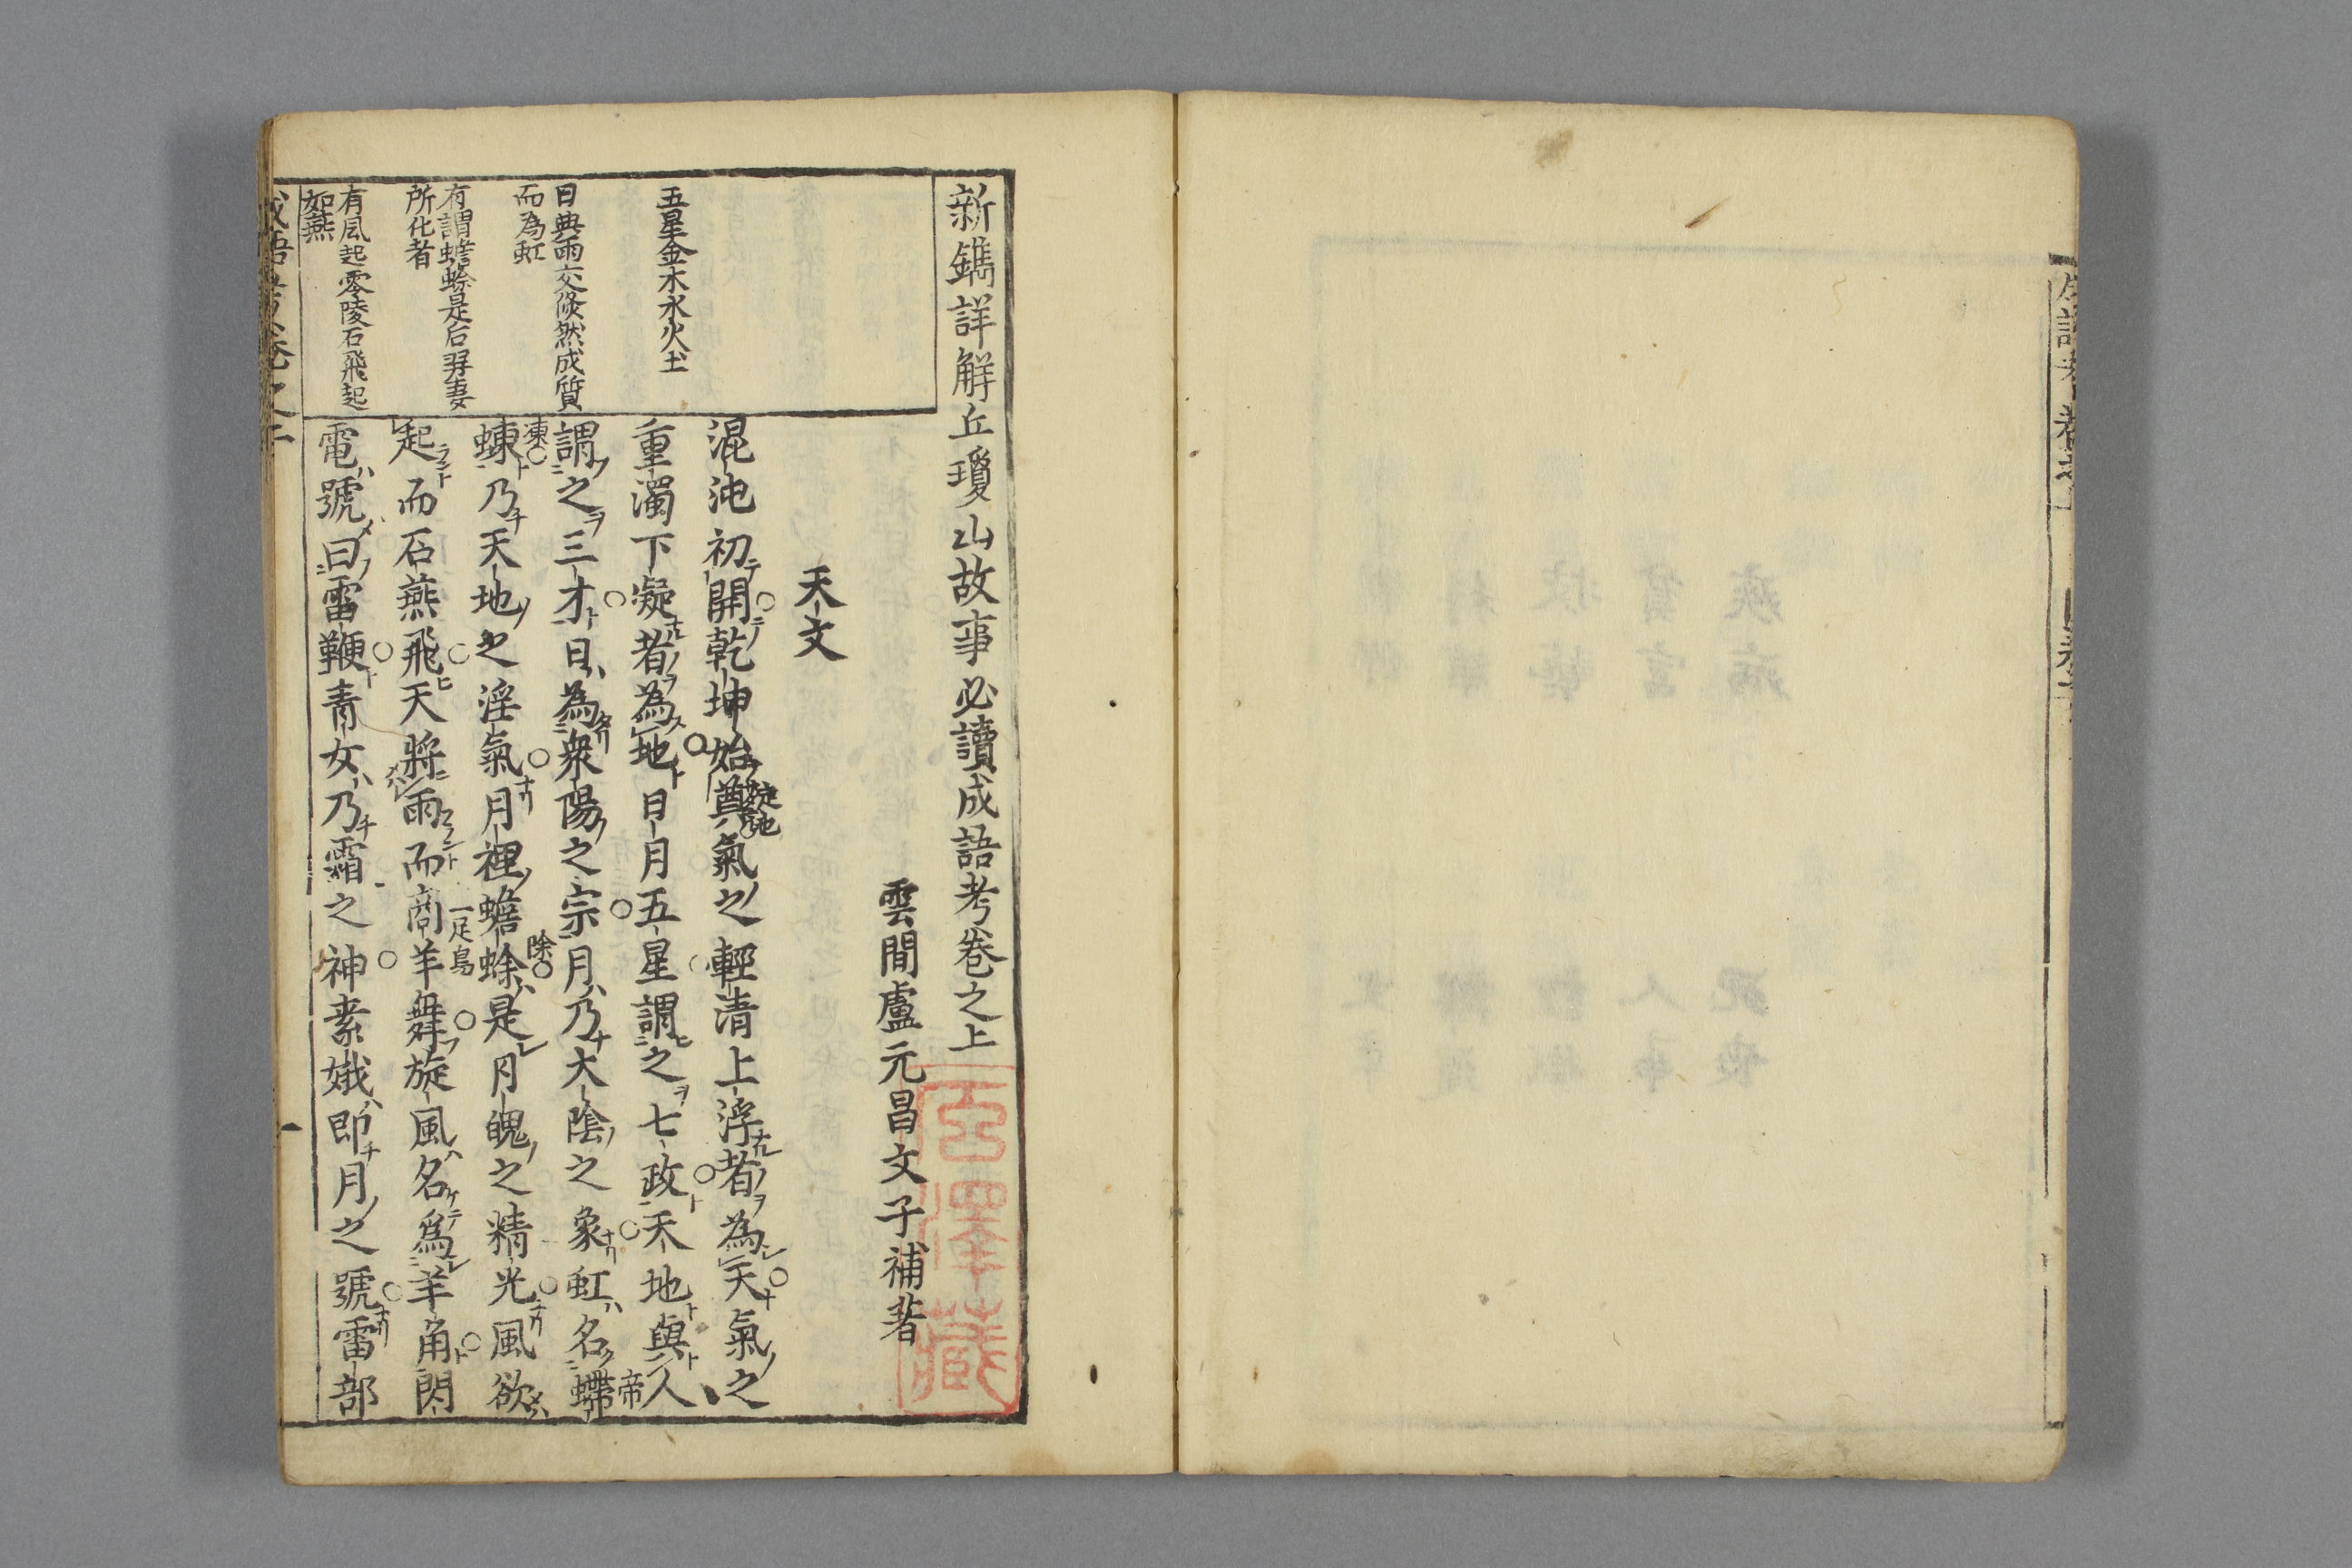 新鐫詳解丘瓊山故事必讀成語考卷之上
雲間盧元昌文子補著
天文
五星金木水火土
日與雨交倐然成質
而為虹
有謂蟾蜍是后羿妻
所化者
有風起零陵石飛起
如燕
混沌初開乾坤始奠氣之輕清上浮者為天氣之
重濁下凝者為地日月五星謂之七政天地與人
謂之三才日為衆陽之宗月乃大陰之象虹名螮
蝀乃天地之淫氣月裡蟾蜍是月魄之精光風欲
起而石燕飛天將雨而商羊舞旋風名為羊角閃
電號曰雷鞭青女乃霜之神素娥即月之號雷部
定也
帝
凍
除
一足鳥
亞澤藏